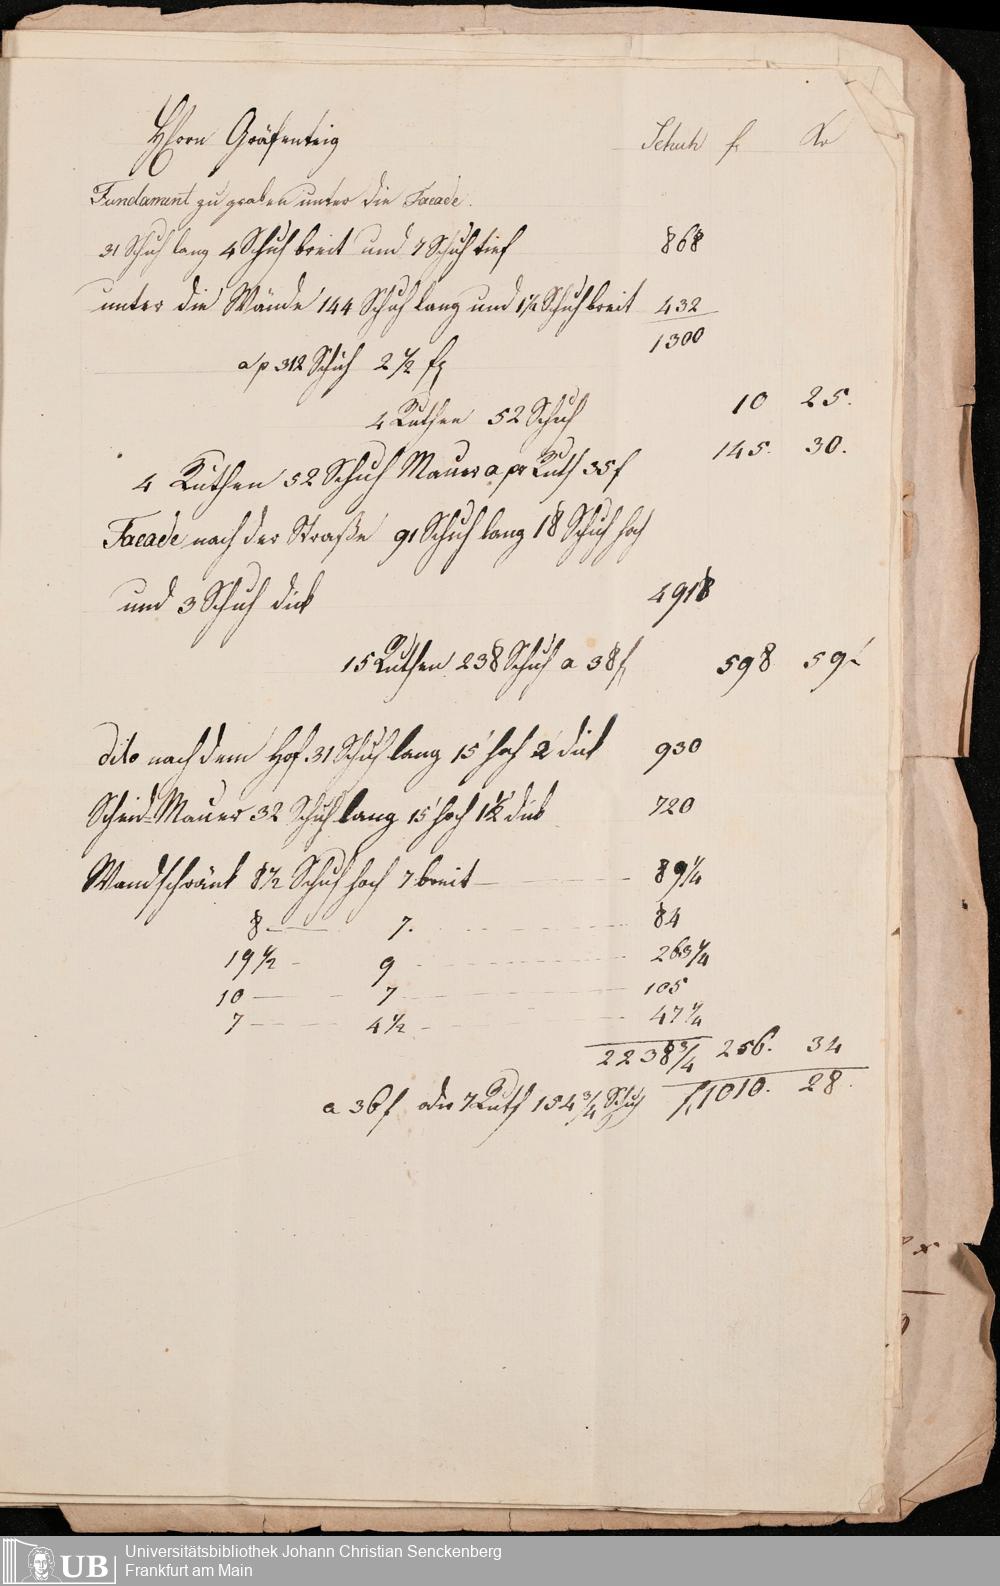 HErrn Gräfenteig Schuh f. Xr
Fundament zu graben unter die Facade.
31 Schuh lang 4 Schuh breit und 7 Schuh tief 868
unter die Wände 144 Schuh lang und 1½ Schuh breit 432
1300
a p 312 Schuh 2½ f
4 Ruthen 52 Schuh 10 25.
4 Ruthen 52 Schuh Mauer a pr Ruth 35 f 145. 30.
Facade nach der Straße 91 Schuh lang 18 Schuh hoch
und 3 Schuh dick 4918
15 Ruthen 238 Schuh a 38 f 598 59
dito nach dem Hof 31 Schuh lang 15' hoch 2' dick 930
Scheid-Mauer 32 Schuh lang 15' hoch 1½' dick 720
Wandschränk 8½ Schuh hoch 7 breit — 89¼
8 — 7. 84
19½ — 9 263¼
10 — 7 105
7 — 4½ - 47¼
2238¾ 256. 34
a 36 f oder 7 Ruth 154¾ Schuh f 1010. 28.
UB
Universitätsbibliothek Johann Christian Senckenberg
Frankfurt am Main